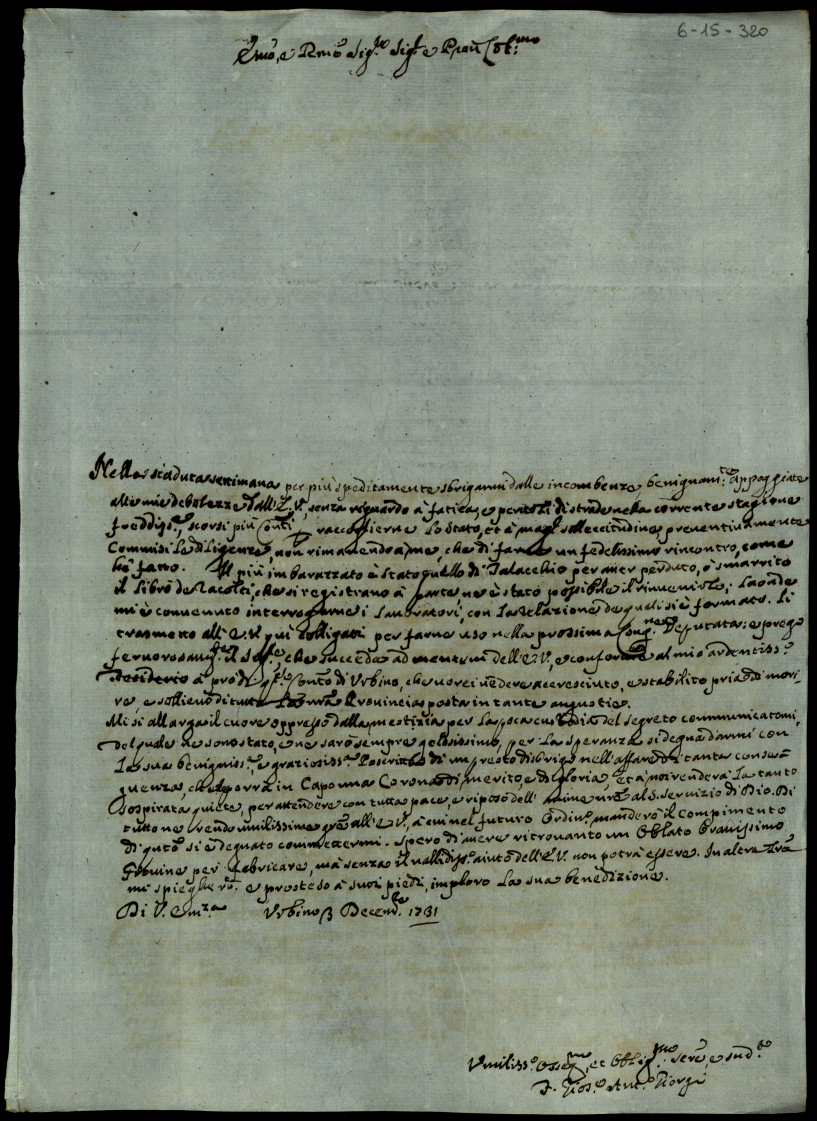 6-15-320
Emo, e Rmo Sig.re Sig.r e Pron Col.mo
Nella scaduta settimana per più speditamente sbrigarmi dalle incombenze, benignam.te appoggiate
alle mie debolezze dall'E.V., senza riguardo à fatica, e pericoli di strade nella corrente stagione
freddiss.a, scorsi più Conti p raccoglierne lo stato, et à magl sollecitudine preventivamente
Commisi le diligenze, non rimanendo a me, che di farne un fedelissimo rincontro, come
hò fatto. Il più imbarazzato è stato quello di Palacchio per aver perduto, ò smarrito
il libro de Racolti, che si registrano à parte, ne è stato possibile il rinvenirlo; laonde
mi è convenuto interrogarne i lavoratori, con la relazione de quali si è formato. Li
trasmetto all'E.V. qui colligati per farne uso nella prossima Cong.ne Deputata: e prego
fervorosam.te il Sig.re, che succeda ad mentem dell'E.V., e conforme al mio ardentiss.o
desiderio à prò di Conto di Urbino, che vorei vedere accresciuto, e stabilito pria di mori-
re, e sollievo di tutta la nra Provincia posta in tante angustie.
Mi si allarga il cuore oppresso dalla mestizia per la poca custodia del segreto communicatomi,
del quale ne sono stato, e ne sarò sempre gelosissimo, per la speranza si degna darmi con
la sua benigniss.a, e graziosiss.a Poscritta di un presto disbrigo nell'affare di tanta conse=
guenza, che porrà in Capo una Corona di merito, e di gloria, et à noi renderà la tanto
sospirata quiete, per attendere con tutta pace, e riposo dell'anime nre al S. servizio di Dio. Di
tutto ne rendo umilissime gre all'E.V., à cui nel futuro Ordin.o manderò il compimento
di qnto si è degnato commettermi. Spero di avere ritrovanto un Oblato bravissimo
Giovine per fabricare, mà senza il validiss.o aiuto dell'E.V. non potrà essere. In altra Lra
mi spiegherò. e prosteso à suoi piedi, imploro la sua benedizione.
Di V. Em.za Urbino 3 Decemb.re 1731
Umiliss.o Osseq.mo, et Oblig.mo serv.e, e sud.to
F. Gios.e Ant.o Giorgi